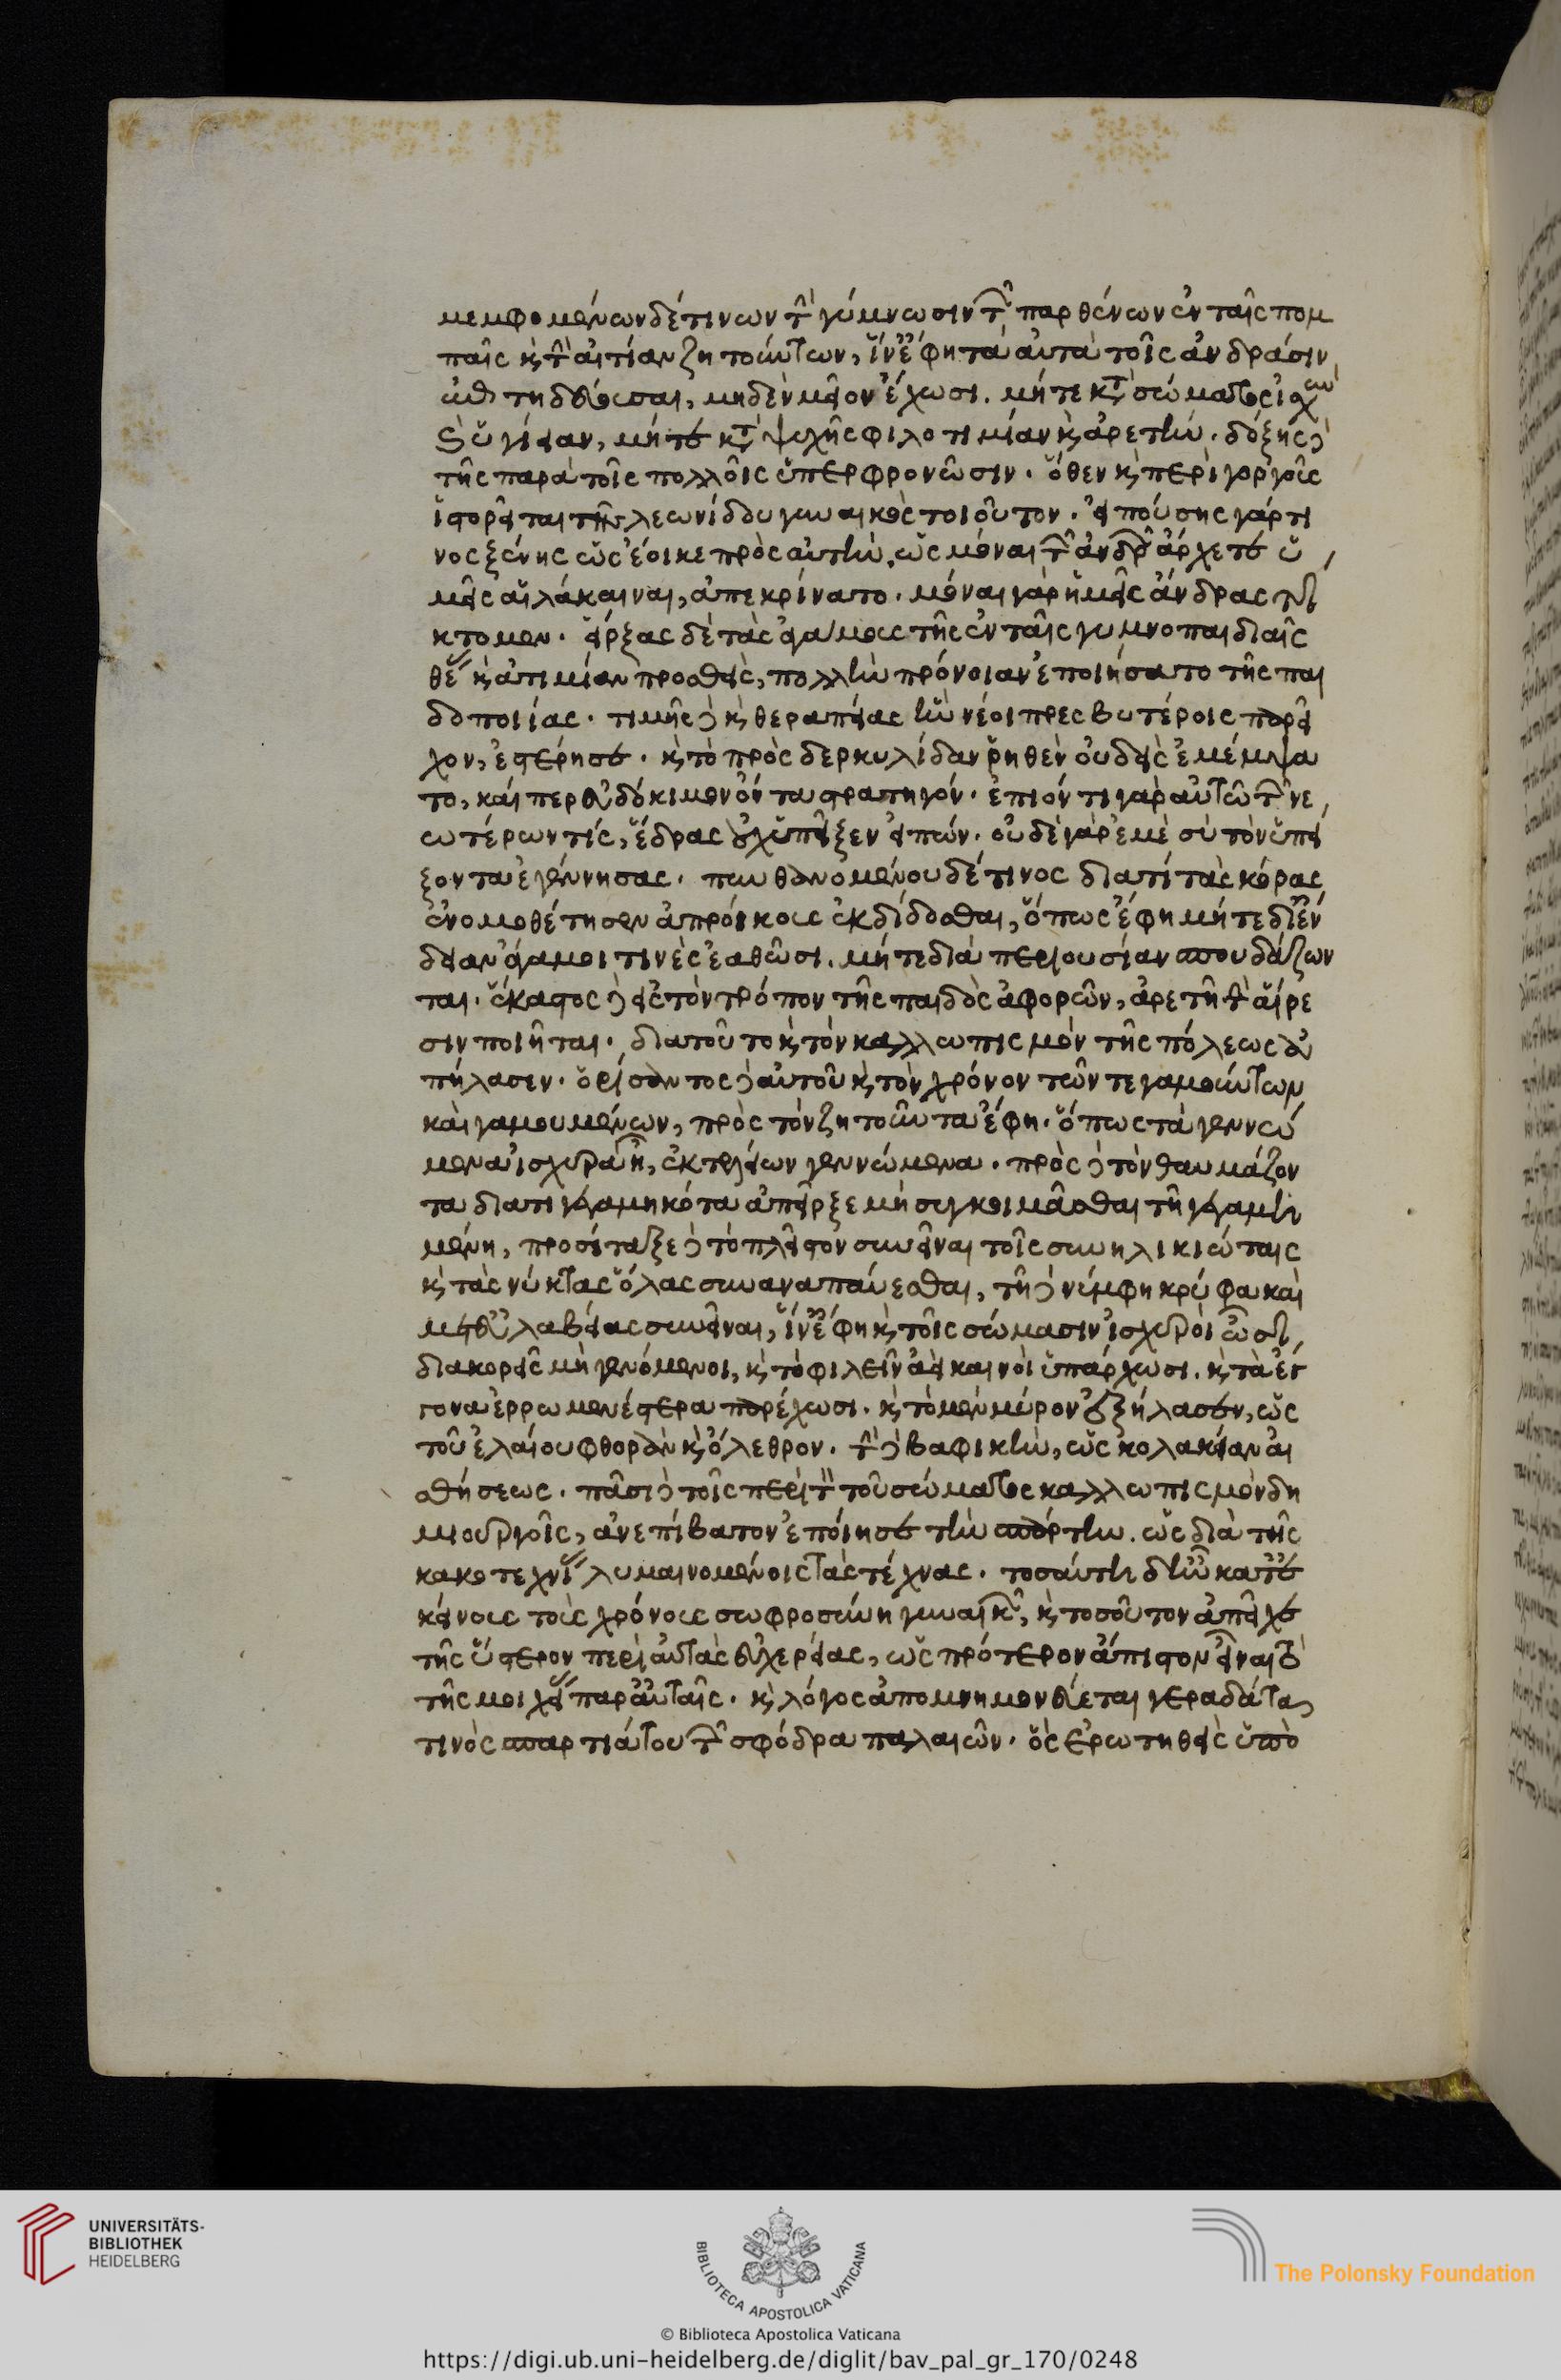 μεμφομένων δέ τινων τὴν γύμνωσιν τῶν παρθένων ἐν ταῖς πομ
παῖς κ̀ τὴν αἰτίαν ζητούντων, ἵν' ἔφη ταὐτὰ τοῖς ἀνδράσιν
ἐπιτηδεύουσαι, μηδὲν μεῖον ἔχωσι. μήτε κατὰ σώματος ἰσχὺν
κ̀ ὑγίειαν, μήτε κατὰ ψυχῆς φιλοτιμίαν κ̀ ἀρετήν. δόξης δὲ
τῆς παρὰ τοῖς πολλοῖς ὑπερφρονῶσιν. ὅθεν κ̀ περὶ γοργοῦς
ἱστορεῖται τῆς λεωνίδου γυναικὸς τοιοῦτον. εἰπούσης γάρ τι
νος ξένης ὡς ἔοικε πρὸς αὐτὴν, ὡς μόναι τῶν ἀνδρῶν ἄρχετε ὑ
μεῖς αἱ λάκαιναι, ἀπεκρίνατο. μόναι γὰρ ἡμεῖς ἄνδρας τί
κτομεν. εἴρξας δὲ τοὺς ἀγάμους τῆς ἐν ταῖς γυμνοπαιδιαῖς
θέας κ̀ ἀτιμίαν προσθεὶς, πολλὴν πρόνοιαν ἐποιήσατο τῆς παι
δοποιίας. τιμῆς δὲ κ̀ θεραπείας ἣν νέοι πρεσβυτέροις παρεῖ
χον, ἐστέρησε. κ̀ τὸ πρὸς δερκυλίδαν ῥηθὲν οὐδεὶς ἐμέμψα
το, καίπερ εὐδόκιμον ὄντα στρατηγόν. ἐπιόντι γὰρ αὐτῶ τῶν νε
ωτέρων τίς, ἕδρας οὐχ ὑπεῖξεν εἰπών. οὐδὲ γὰρ ἐμὲ σὺ τὸν ὑπεί
ξοντα ἐγέννησας. πυνθανομένου δέ τινος διατί τὰς κόρας
ἐνομοθέτησεν ἀπροίκους ἐκδίδοσθαι, ὅπως ἔφη μήτε δι' ἔν
δειαν ἄγαμοί τινὲς ἐαθῶσι. μήτε διὰ περιουσίαν σπουδάζων
ται. ἕκαστος δὲ εἰς τὸν τρόπον τῆς παιδὸς ἀφορῶν, ἀρετῆ τὴν αἵρε
σιν ποιῆται. διατοῦτο κ̀ τὸν καλλωπισμὸν τῆς πόλεως ἀ
πήλασεν. ὁρίσαντος δὲ αὐτοῦ κ̀ τὸν χρόνον τῶν τε γαμούντων
καὶ γαμουμένων, πρὸς τὸν ζητοῦντα ἔφη. ὅπως τὰ γεννώ
μενα ἰσχυρὰ ἦ, ἐκ τελείων γεννώμενα. πρὸς δὲ τὸν θαυμάζον
τα διατί γεγαμηκότα ἀπεῖρξε μὴ συγκοιμᾶσθαι τῆ γεγαμη
μένη, προσέταξε δὲ τὸ πλεῖστον συνεῖναι τοῖς συνηλικιώταις
κ̀ τὰς νύκτας ὅλας συναναπαύεσθαι, τῆ δὲ νύμφη κρύφα καὶ
μετ' εὐλαβείας συνεῖναι, ἵν' ἔφη κ̀ τοῖς σώμασιν ἰσχυροὶ ὦσι,
διακορεῖς μὴ γενόμενοι, κ̀ τὸ φιλεῖν ἀεὶ καινοὶ ὑπάρχωσι. κ̀ τὰ ἔγ
γονα ἐρρωμενέστερα παρέχωσι. κ̀ τὸ μὲν μύρον ἐξήλασεν, ὡς
τοῦ ἐλαίου φθορὰν κ̀ ὄλεθρον. τὴν δὲ βαφικὴν, ὡς κολακείαν αἰ
σθήσεως. πᾶσι δὲ τοῖς περὶ τὴν τοῦ σώματος καλλωπισμὸν δη
μιουργοῖς, ἀνεπίβατον ἐποίησε τὴν σπάρτην. ὡς διὰ τῆς
κακοτεχνίας λυμαινομένοις τὰς τέχνας. τοσαύτη δ' ἦν κατ' ἐ
κείνους τοὺς χρόνους σωφροσύνη γυναικῶν, κ̀ τοσοῦτον ἀπεῖχε
τῆς ὕστερον περὶ αὐτὰς εὐχερείας, ὡς πρότερον ἄπιστον εἶναι τὸ
τῆς μοιχείας παρ' αὐταῖς. κ̀ λόγος ἀπομνημονεύεται γεραδάτα
τινὸς σπαρτιάτου τῶν σφόδρα παλαιῶν. ὃς ἐρωτηθεὶς ὑπὸ
UNIVERSITÄTS-
BIBLIOTHEK
HEIDELBERG
BIBLIOTECA APOSTOLICA VATICANA
The Polonsky Foundation
© Biblioteca Apostolica Vaticana
https://digi.ub.uni-heidelberg.de/diglit/bav_pal_gr_170/0248